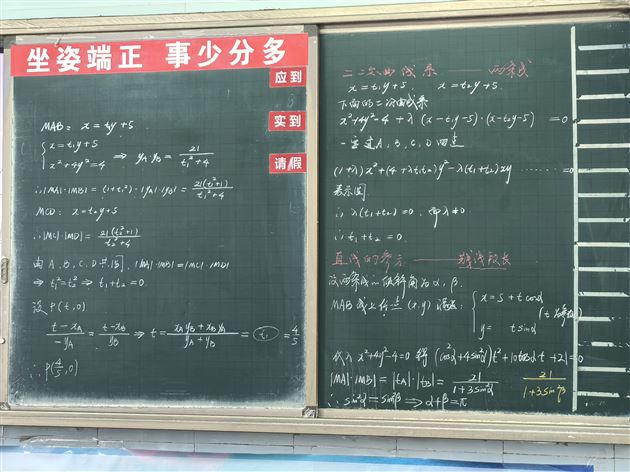 坐姿端正 事少分多
应到
实到
请假
MAB: x = t₁y + 5
{ x = t₁y + 5
x² + 4y² = 4 ⇒ y_A·y_B = 21/(t₁²+4)
∴ |MA|·|MB| = (1+t₁²)·|y_A|·|y_B| = 21(t₁²+1)/(t₁²+4)
MCD: x = t₂y + 5
∴ |MC|·|MD| = 21(t₂²+1)/(t₂²+4)
由 A、B、C、D 共圆, |MA|·|MB| = |MC|·|MD|
⇒ t₁² = t₂² ⇒ t₁ + t₂ = 0
设 P(t, 0)
(t - x_A)/(-y_A) = (t - x_B)/y_B ⇒ t = (x_A y_B + x_B y_A)/(y_A + y_B) = = 4/5
∴ P(4/5, 0)
二二次曲线系 —— 两条线
x = t₁y + 5, x = t₂y + 5.
下面的二次曲线系
x² + 4y² - 4 + λ (x - t₁y - 5)·(x - t₂y - 5) = 0
一定过 A、B、C、D 四点
(1+λ)x² + (4 + λt₁t₂)y² - λ(t₁+t₂)xy ······ = 0
表示圆
∴ λ(t₁+t₂) = 0 λ≠0
∴ t₁ + t₂ = 0
直线的参方 ——
设两条线的倾斜角为 α, β.
MAB 线上任一点 (x, y) 满足: { x = 5 + t cosα
y = t sinα (t 为参数)
代入 x² + 4y² - 4 = 0 得 (cos²α + 4sin²α)t² + 10cosα t + 21 = 0
|MA|·|MB| = |t_A|·|t_B| = 21/(1+3sin²α) 21/(1+3sin²β)
∴ sin²α = sin²β ⇒ α+β = π